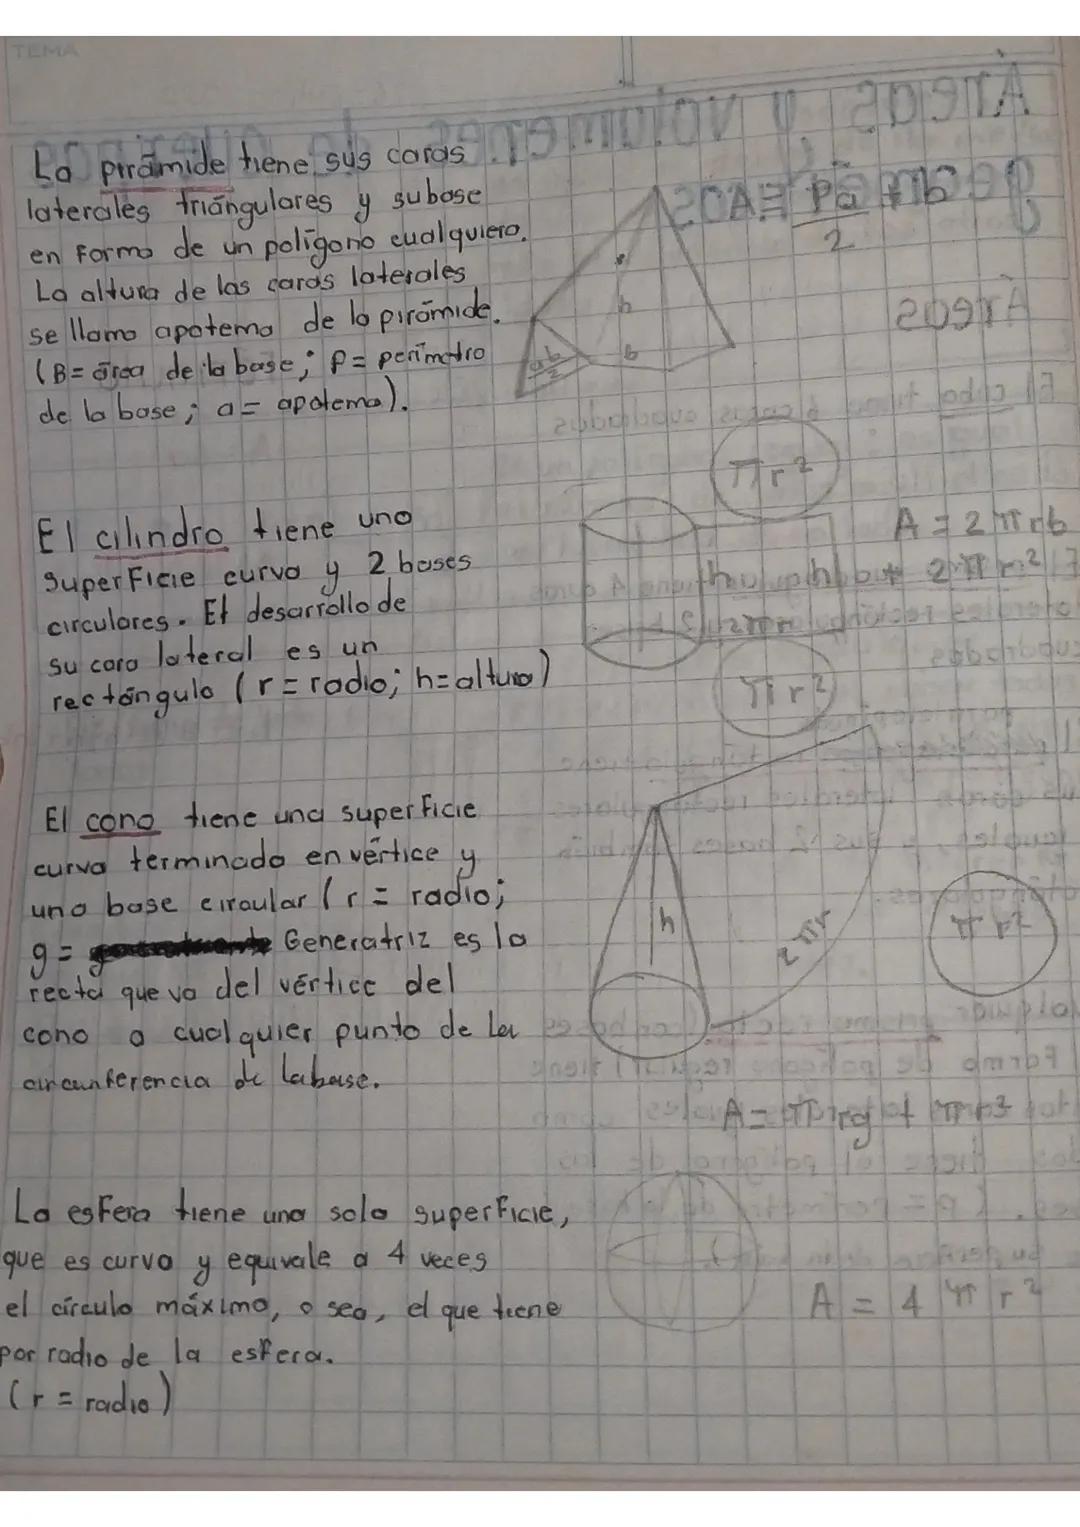 TEMA
La pirámide tiene sus caras
laterales triángulares y su base
en forma de un polígono cualquiera.
La altura de las caras laterales
se llama apotema de la pirámide.
(B= área de la base; P= perímetro
de la base; a= apotema).
A= Pa/2 + b
h
b
ab/2
El cilindro tiene una
superficie curva y 2 bases
circulares. El desarrollo de
su cara lateral es un
rectángulo (r = radio; h=altura)
πr²
A = 2πrh
h h + 2πr²
2πr
πr²
El cono tiene una superficie
curva terminada en vértice y
una base ciraular (r = radio;
g= Generatriz es la
recta que va del vértice del
cono a cualquier punto de la
circunferencia de la base.
h
2πr
πr²
A= πrg + πr²
La esfera tiene una sola superficie,
que es curva y equivale a 4 veces
el círculo máximo, o sea, el que tiene
por radio de la esfera.
(r = radio)
A = 4πr²